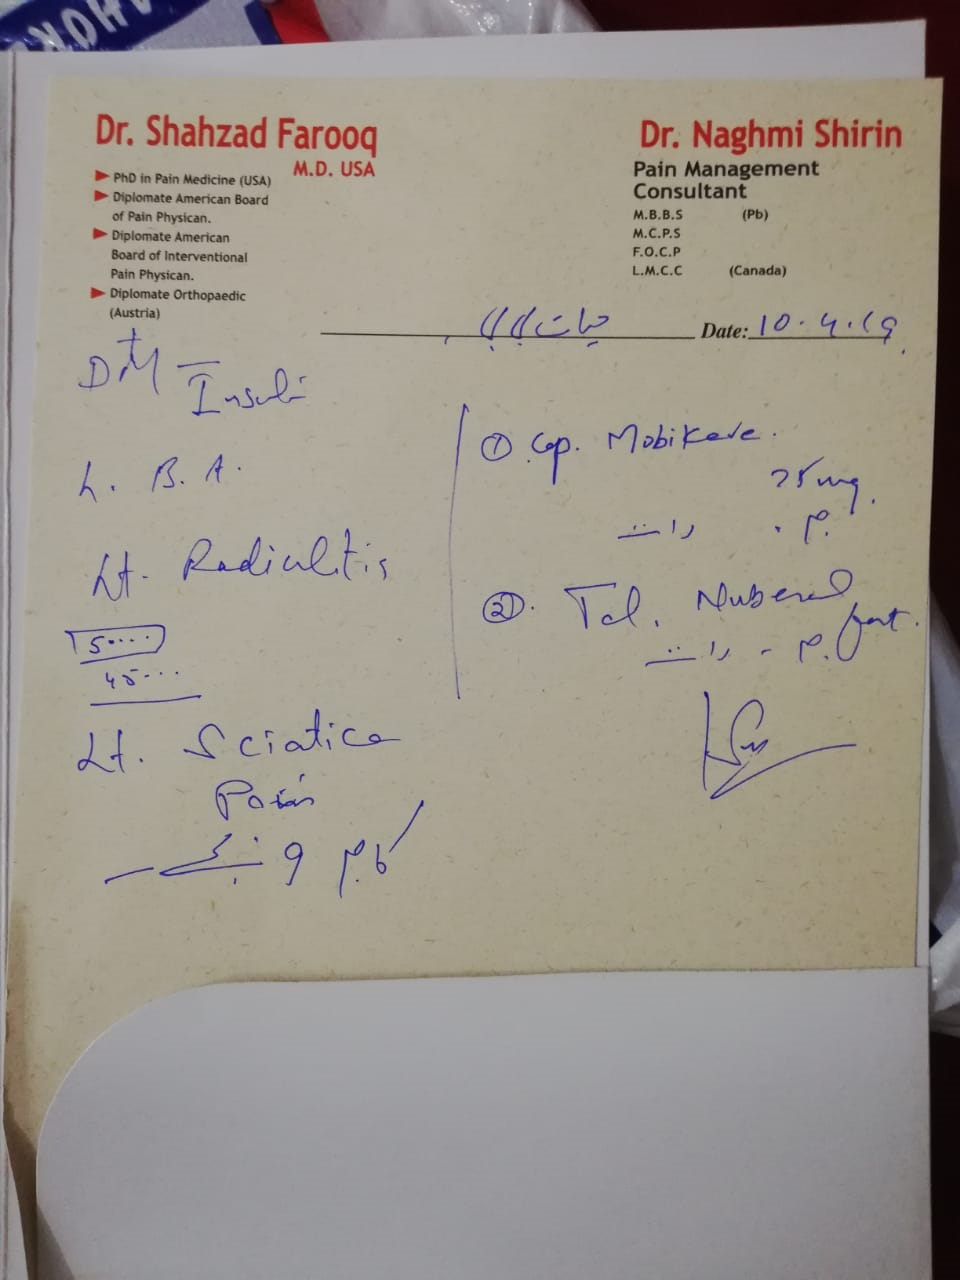 Dr. Shahzad Farooq
M.D. USA
PhD in Pain Medicine (USA)
Diplomate American Board
of Pain Physican.
Diplomate American
Board of Interventional
Pain Physican.
Diplomate Orthopaedic
(Austria)
Dr. Naghmi Shirin
Pain Management
Consultant
M.B.B.S (Pb)
M.C.P.S
F.O.C.P
L.M.C.C (Canada)
Date: 10.4.19
DM
Insuli
L. B. A.
Lt. Radiculitis
Lt. Sciatica
Pain
① Cap. Mobikare.
75mg.
رات
② Tel. Nuberol
fort.
رات